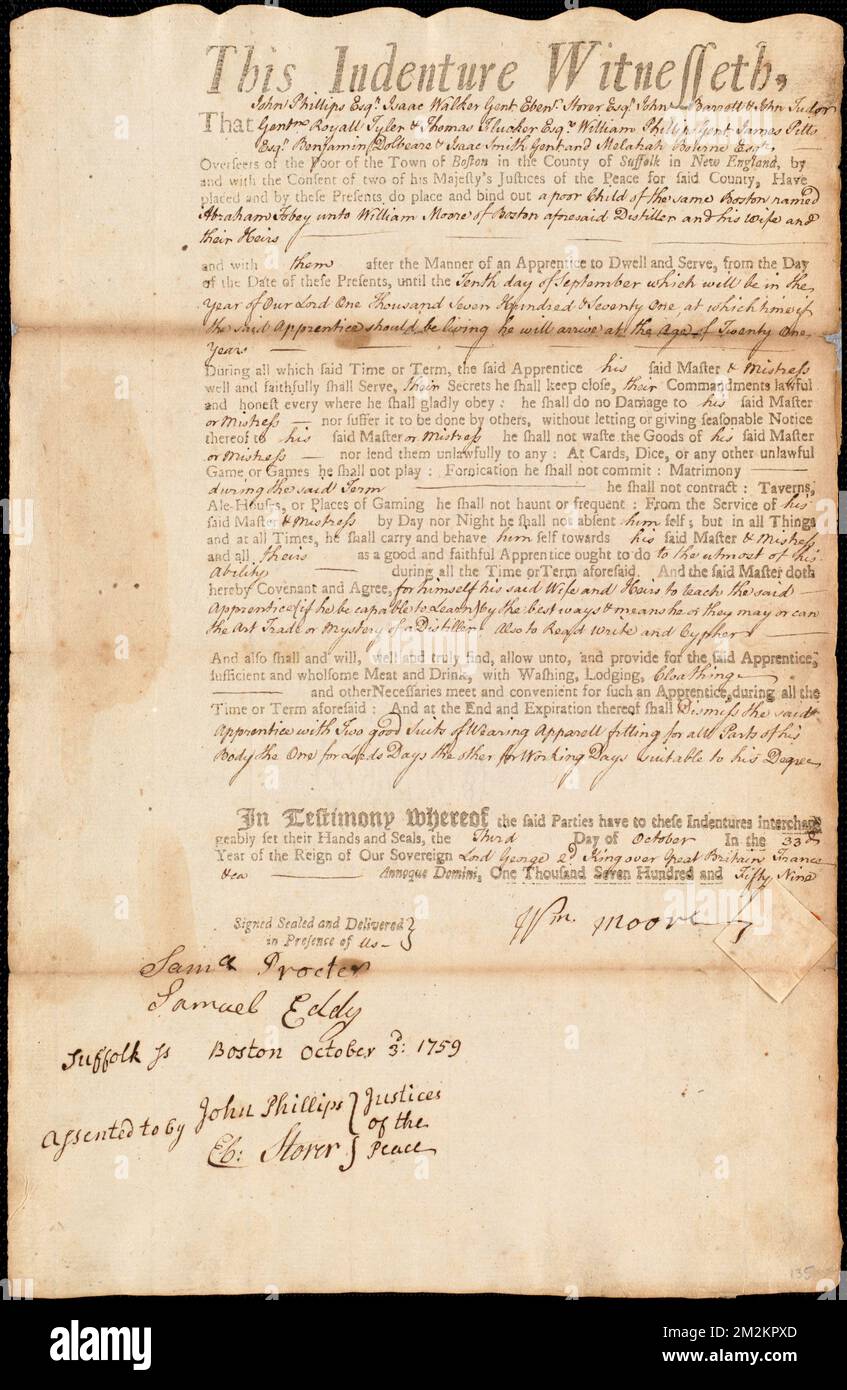 This Indenture Witnesseth,
John Phillips Esqr. Isaac Walker Gent Ebenr. Storer Esqr. John Barrett & John Tudor
That Gentmn Royall Tyler & Thomas Flucker Esqrs William Phillips Gent James Pitts
Esqr. Benjamin Dolbeare & Isaac Smith Gent and Melatiah Bourne Esqr.
Overseers of the Poor of the Town of Boston in the County of Suffolk in New England, by
and with the Consent of two of his Majesty's Justices of the Peace for said County, Have
placed and by these Presents do place and bind out a poor Child of the same Boston named
Abraham Tobey unto William Moore of Boston aforesaid Distiller and his Wife and
their Heirs
and with them after the Manner of an Apprentice to Dwell and Serve, from the Day
of the Date of these Presents, until the Tenth day of September which will be in the
Year of Our Lord One Thousand Seven Hundred & Seventy One, at which time if
the said Apprentice should be living he will arrive at the Age of Twenty One
Years
During all which said Time or Term, the said Apprentice his said Master & Mistress
well and faithfully shall Serve, their Secrets he shall keep close, their Commandments lawful
and honest every where he shall gladly obey : he shall do no Damage to his said Master
or Mistress nor suffer it to be done by others, without letting or giving seasonable Notice
thereof to his said Master or Mistress he shall not waste the Goods of his said Master
or Mistress nor lend them unlawfully to any : At Cards, Dice, or any other unlawful
Game or Games he shall not play : Fornication he shall not commit : Matrimony
during the said Term he shall not contract : Taverns,
Ale-Houses, or Places of Gaming he shall not haunt or frequent : From the Service of his
said Master & Mistress by Day nor Night he shall not absent him self ; but in all Things
and at all Times, he shall carry and behave him self towards his said Master & Mistress
and all theirs as a good and faithful Apprentice ought to do to the utmost of his
Ability during all the Time or Term aforesaid. And the said Master doth
hereby Covenant and Agree, for himself his said Wife and Heirs to teach the said
Apprentice (if he be capable to Learn) by the best ways & means he or they may or can
the Art Trade or Mystery of a Distiller. Also to Read Write and Cypher
And also shall and will, well and truly find, allow unto, and provide for the said Apprentice,
sufficient and wholsome Meat and Drink, with Washing, Lodging, Cloathing
and other Necessaries meet and convenient for such an Apprentice, during all the
Time or Term aforesaid : And at the End and Expiration thereof shall Dismiss the said
Apprentice with Two good Suits of Wearing Apparell fitting for all Parts of his
Body the One for Lords Days the other for Working Days suitable to his Degree
In Testimony Whereof the said Parties have to these Indentures interchan
geably set their Hands and Seals, the Third Day of October In the 33d
Year of the Reign of Our Sovereign Lord George 2d King over Great Britain France
&ca Annoque Domini, One Thousand Seven Hundred and Fifty Nine
Signed Sealed and Delivered
in Presence of Us
Wm. Moore
Saml Procter
Samuel Eddy
Suffolk ss Boston October 3d: 1759
Assented to by John Phillips } Justices
of the
Eb: Storer } Peace
135
alamy
Image ID: 2M2KPXD
www.alamy.com